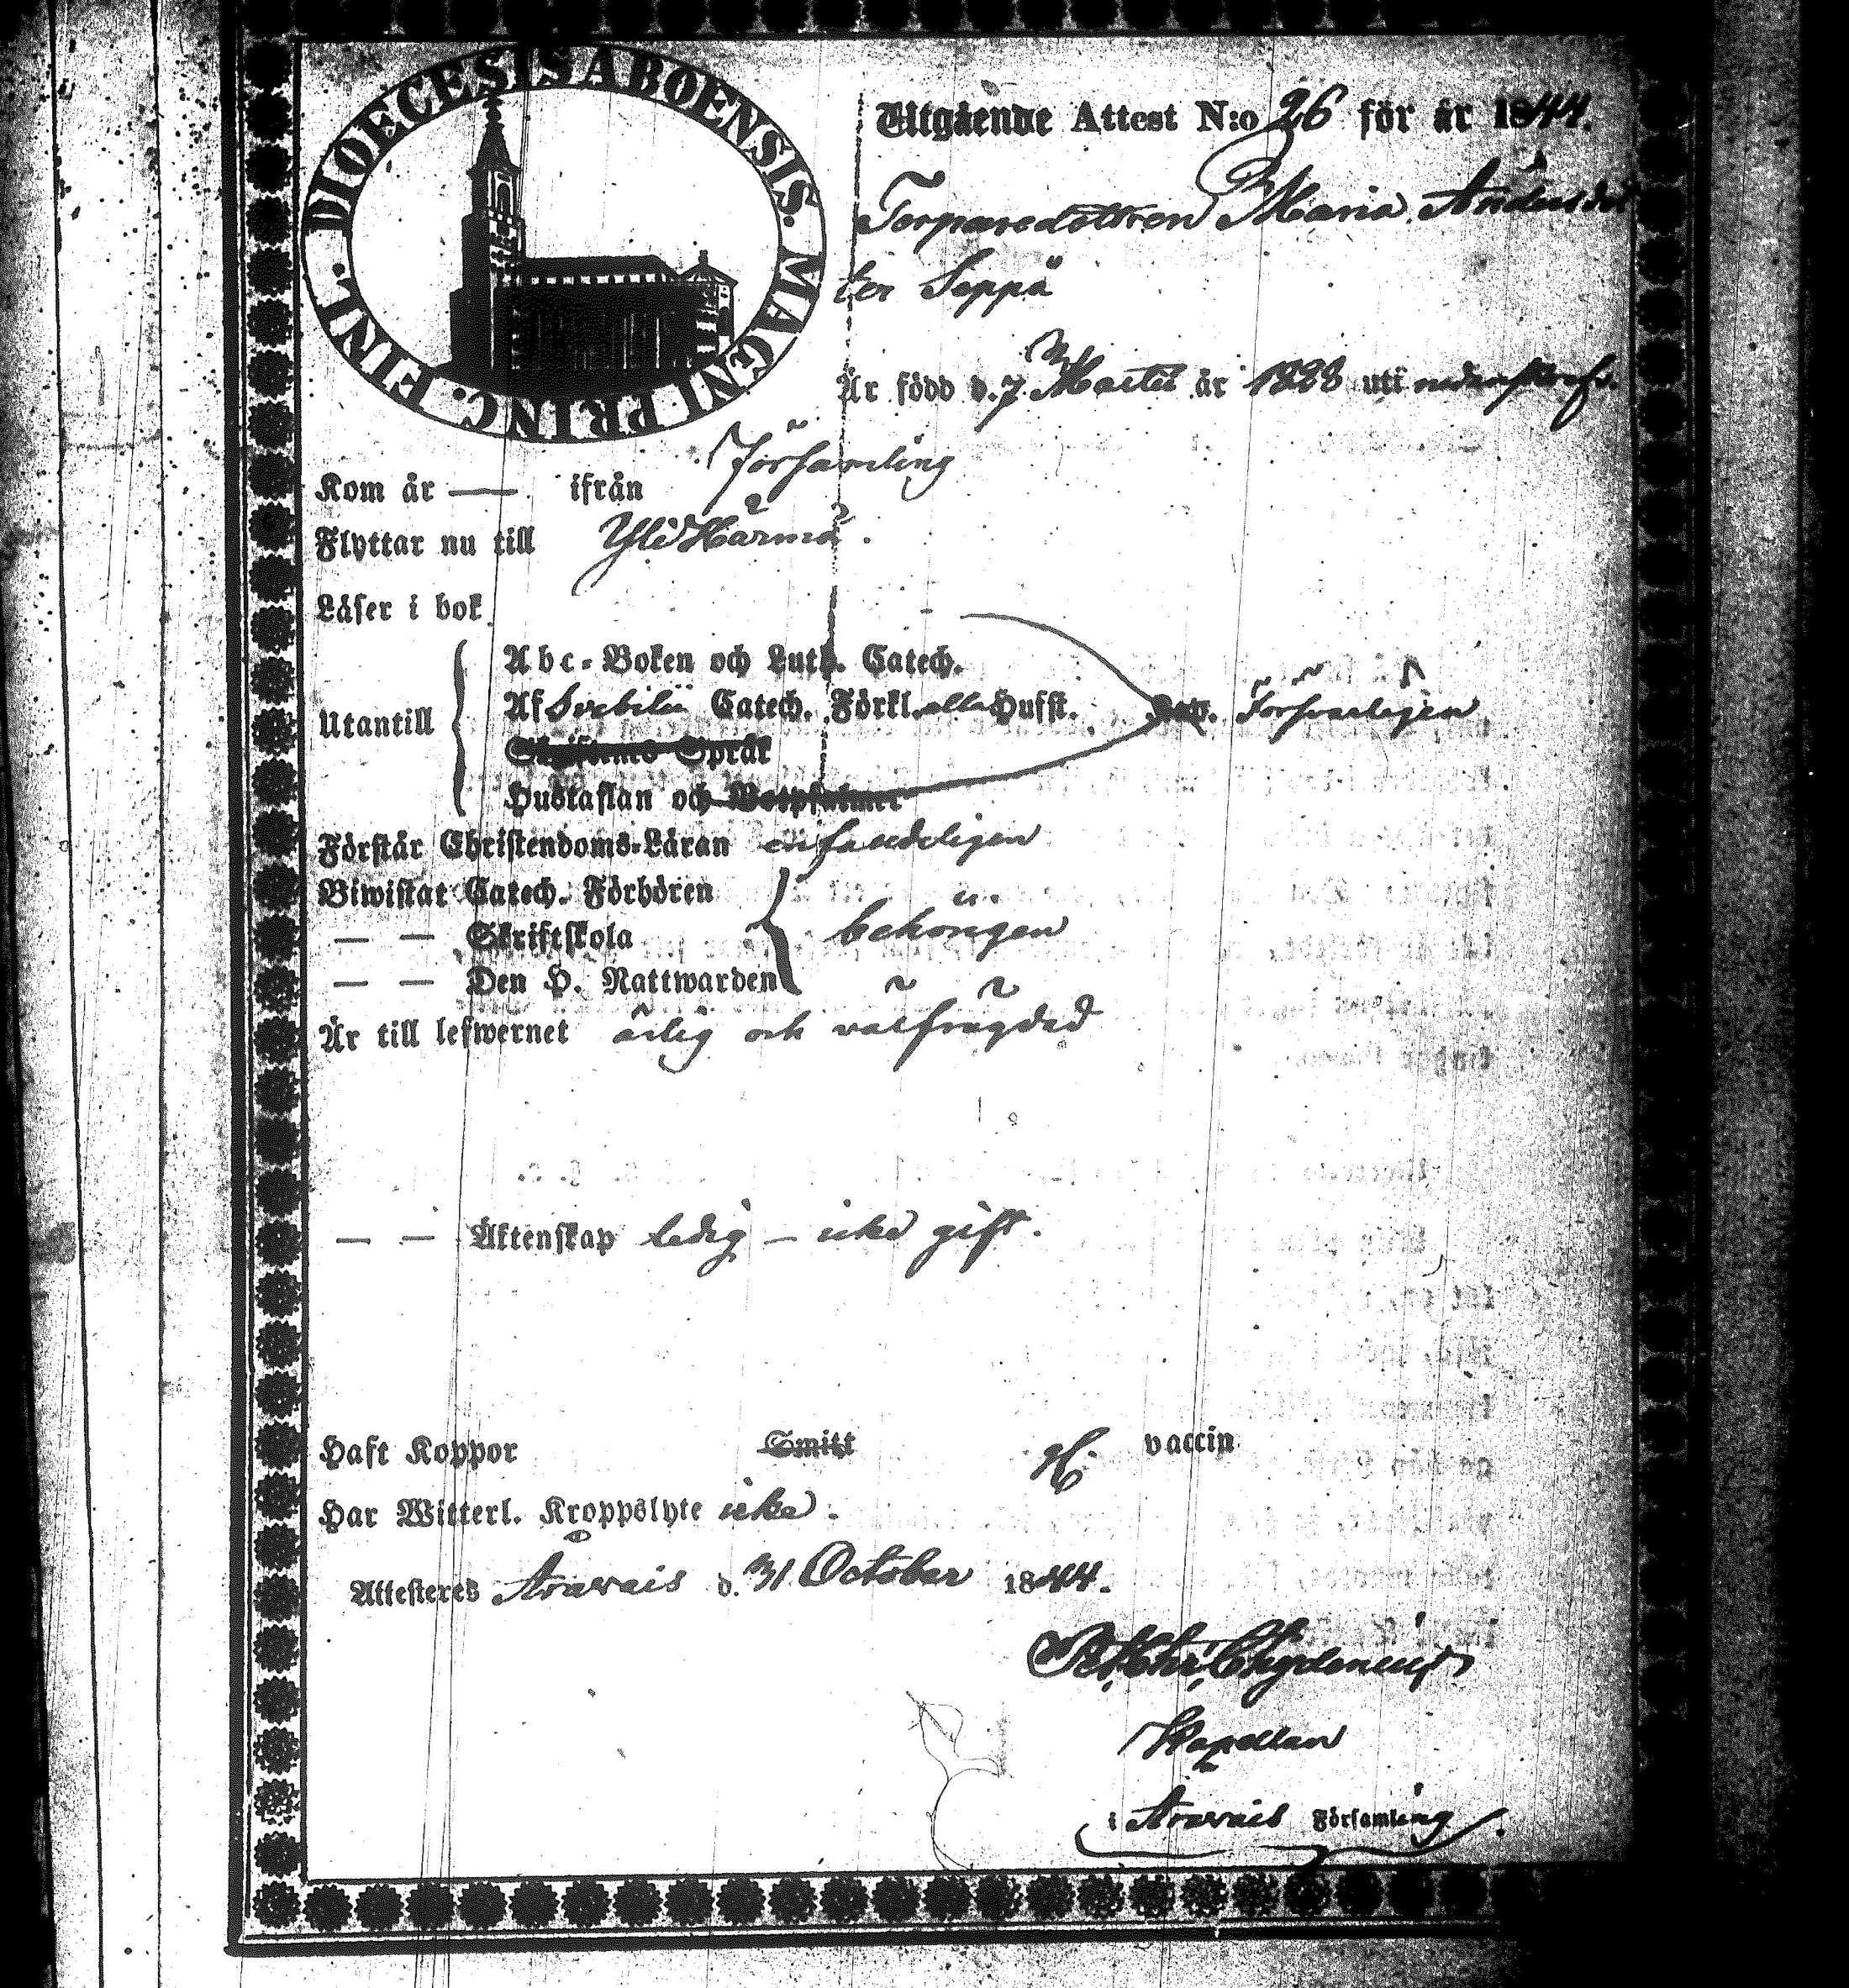 DIOECESIS ABOENSIS. MAGNI PRINC. FINL.
Utgående Attest N:o 26 för år 1844.
Torparedottren Maria Andersdot
ter Seppä
Är född d. 7 Martii år 1828 uti
församling
Kom år — ifrån
Flyttar nu till Yli Härmä.
Läser i bok
Abc-Boken och Luth. Catech.
Utantill
Af Svebilii Catech. Förkl. alla Hufst. försvarligen
Skriftenes Språk
Hustaflan och Botpsalmer
Förstår Christendoms-Läran enfaldeligen
Biwistat Catech. Förhören
— — Skriftskola behörigen
— — Den H. Nattwarden
Är till lefwernet ärlig och välfrägdad
— — Äktenskap ledig – icke gift.
Haft Koppor Smitt vaccin
Har Witterl. Kroppslyte icke.
Attesteres Oravais d. 31 October 1844.
Chydenius
Kapellan
i Oravais Församling.